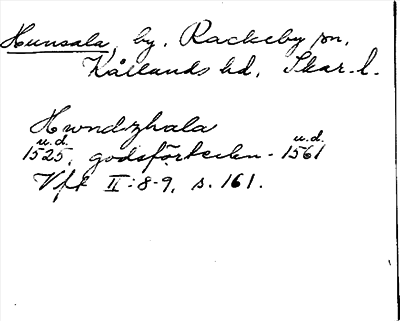 Hunsala, by, Rackeby sn,
Kållands hd, Skar. l.
Hwndzhala
u.d. u.d.
1525, godsförteckn. 1561
Vft II:8-9, s. 161.